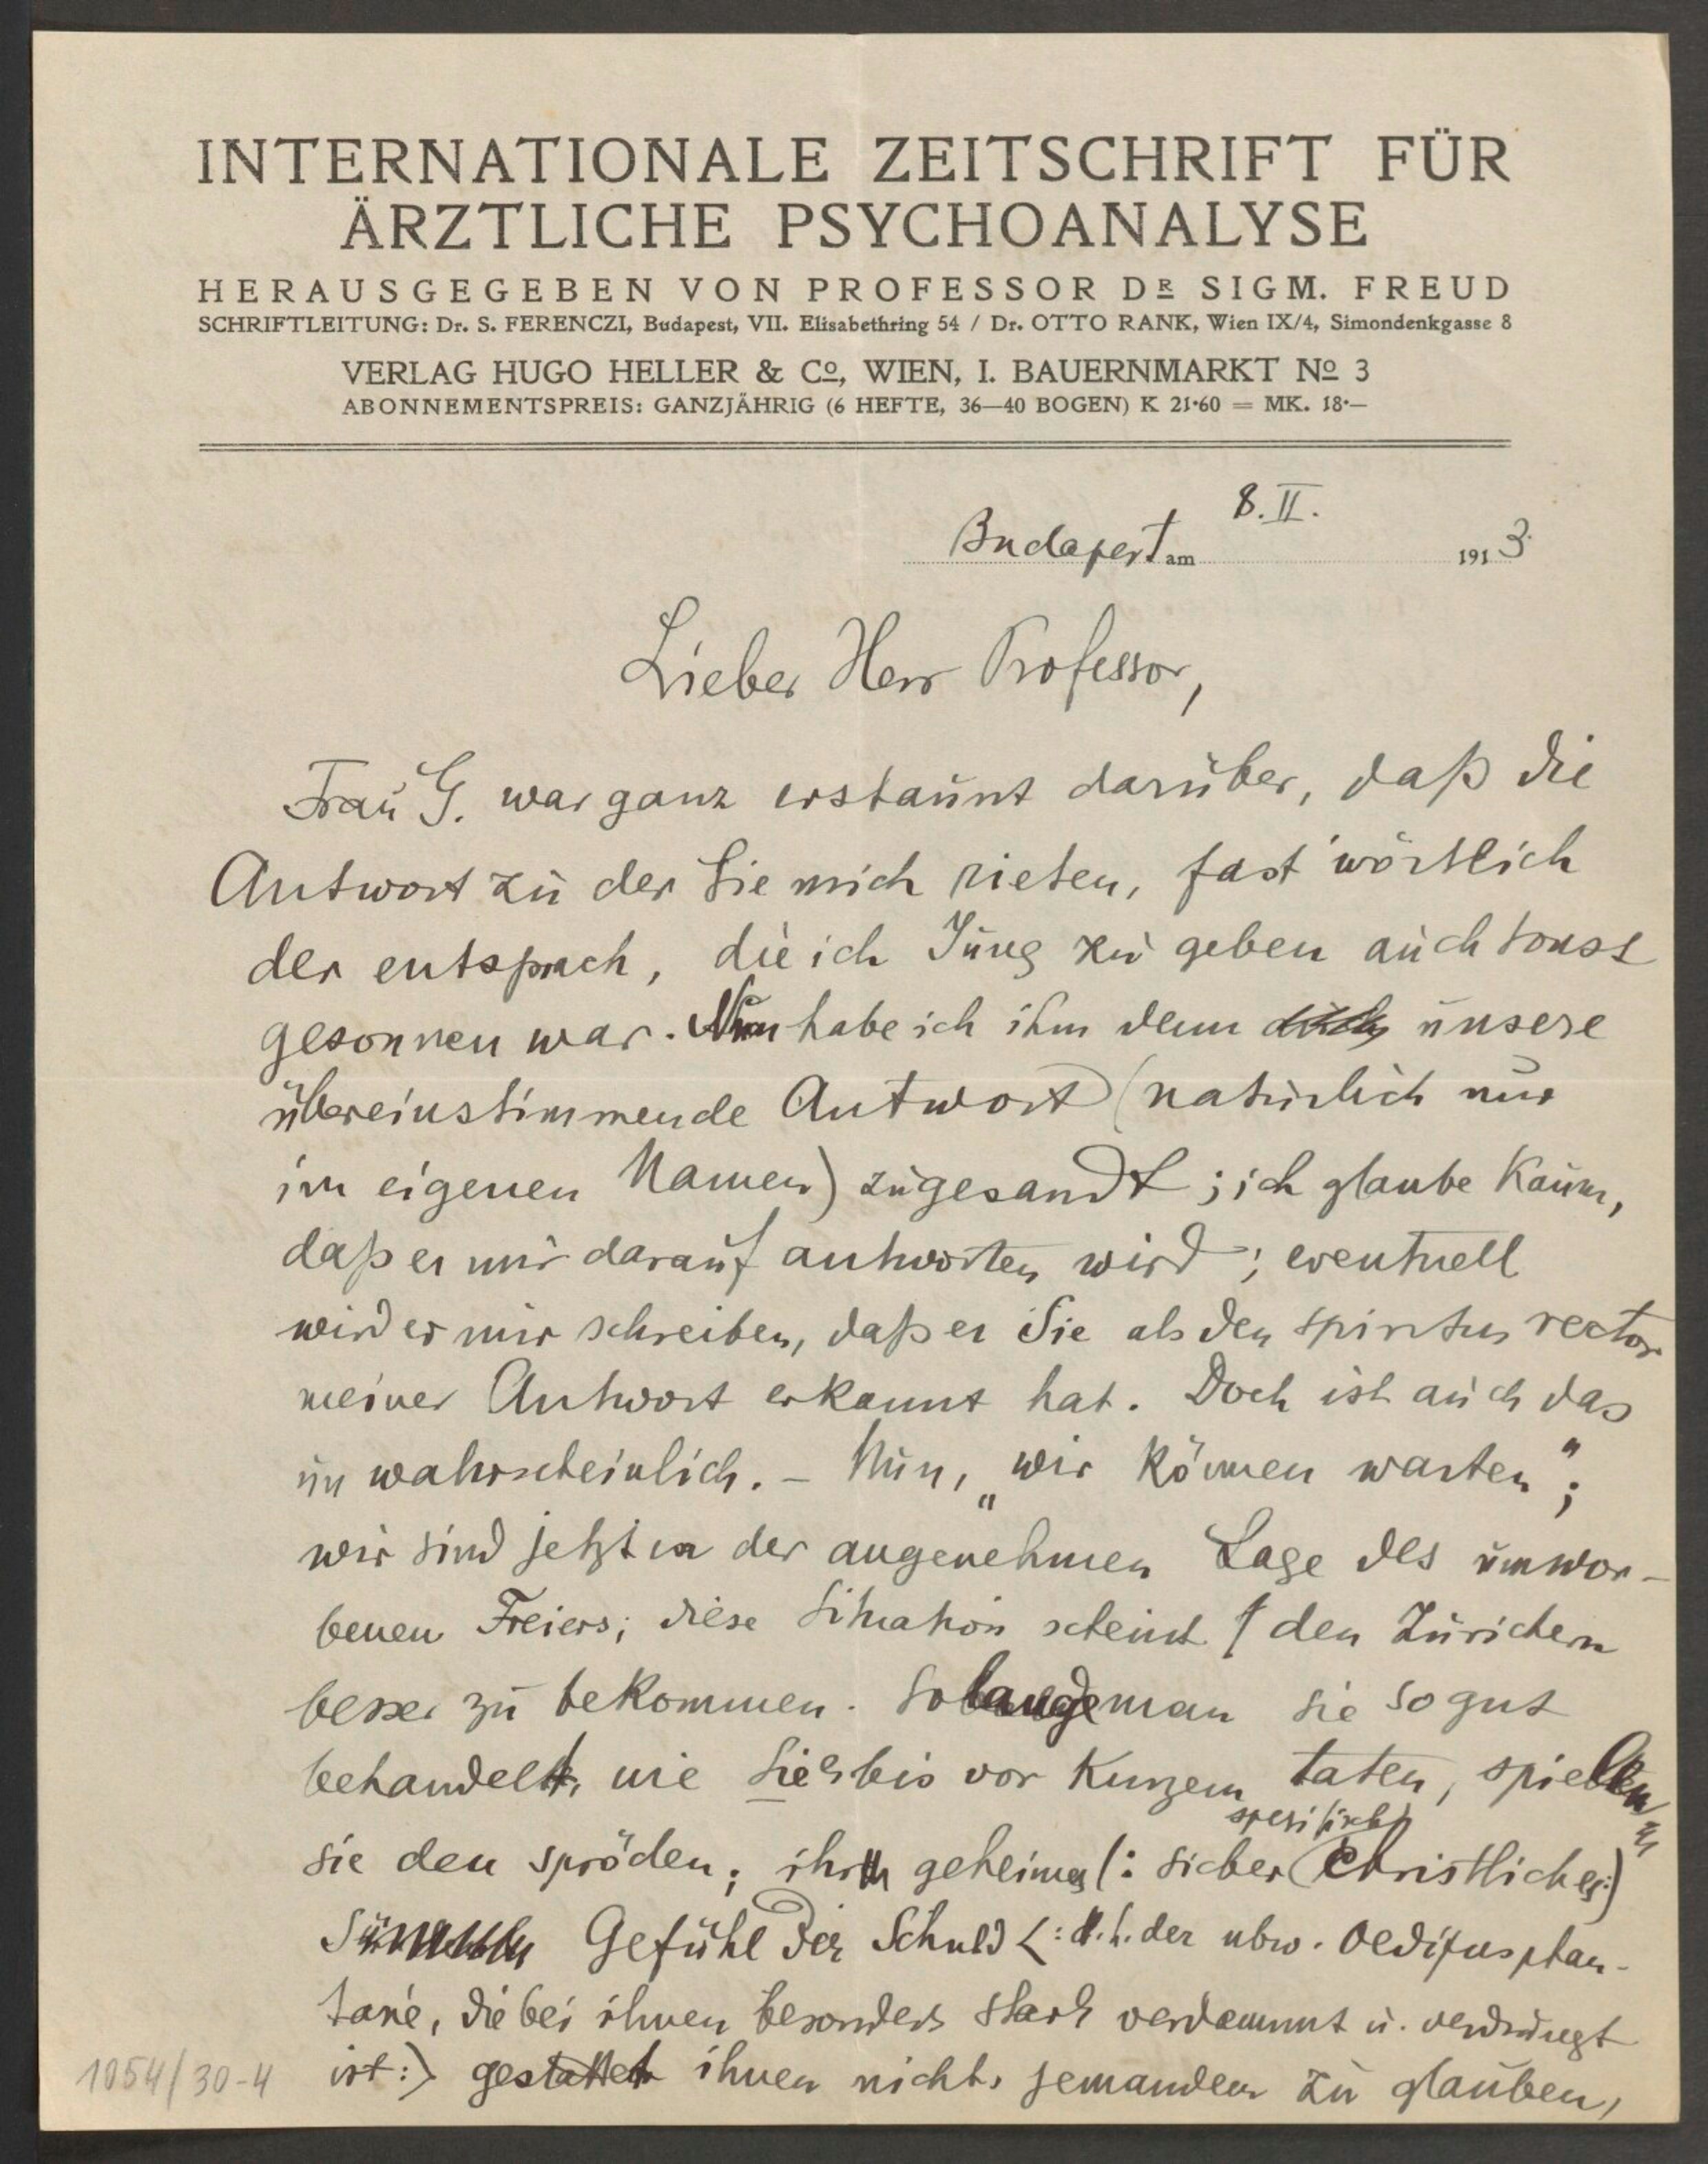 INTERNATIONALE ZEITSCHRIFT FÜR
ÄRZTLICHE PSYCHOANALYSE
HERAUSGEGEBEN VON PROFESSOR DR SIGM. FREUD
SCHRIFTLEITUNG: Dr. S. FERENCZI, Budapest, VII. Elisabethring 54 / Dr. OTTO RANK, Wien IX/4, Simondenkgasse 8
VERLAG HUGO HELLER & Co, WIEN, I. BAUERNMARKT No 3
ABONNEMENTSPREIS: GANZJÄHRIG (6 HEFTE, 36—40 BOGEN) K 21·60 = MK. 18·—
Budapest am 8. II. 1913
Lieber Herr Professor,
Frau G. war ganz erstaunt darüber, daß die
Antwort zu der Sie mich rieten, fast wörtlich
der entsprach, die ich Jung zu geben auch sonst
gesonnen war. Nun habe ich ihm denn unsere
übereinstimmende Antwort (natürlich nur
im eigenen Namen) zugesandt; ich glaube kaum,
daß er mir darauf antworten wird; eventuell
wird er mir schreiben, daß er Sie als den spiritus rector
meiner Antwort erkannt hat. Doch ist auch das
unwahrscheinlich. – Nun, „wir können warten";
wir sind jetzt in der angenehmen Lage des umwor-
benen Freiers; diese Situation scheint den Zürichern
besser zu bekommen. Solange man sie so gut
behandelt, wie Sie es bis vor Kurzem taten, spielen
sie den spröden; ihr geheimes (: sicher spezifisch christliches :)
Gefühl der Schuld (: d. h. der ubw. Oedipusphan-
tasie, die bei ihnen besonders stark verdammt u. verdrängt
ist :) gestattet ihnen nicht, jemandem zu glauben,
1054/30-4